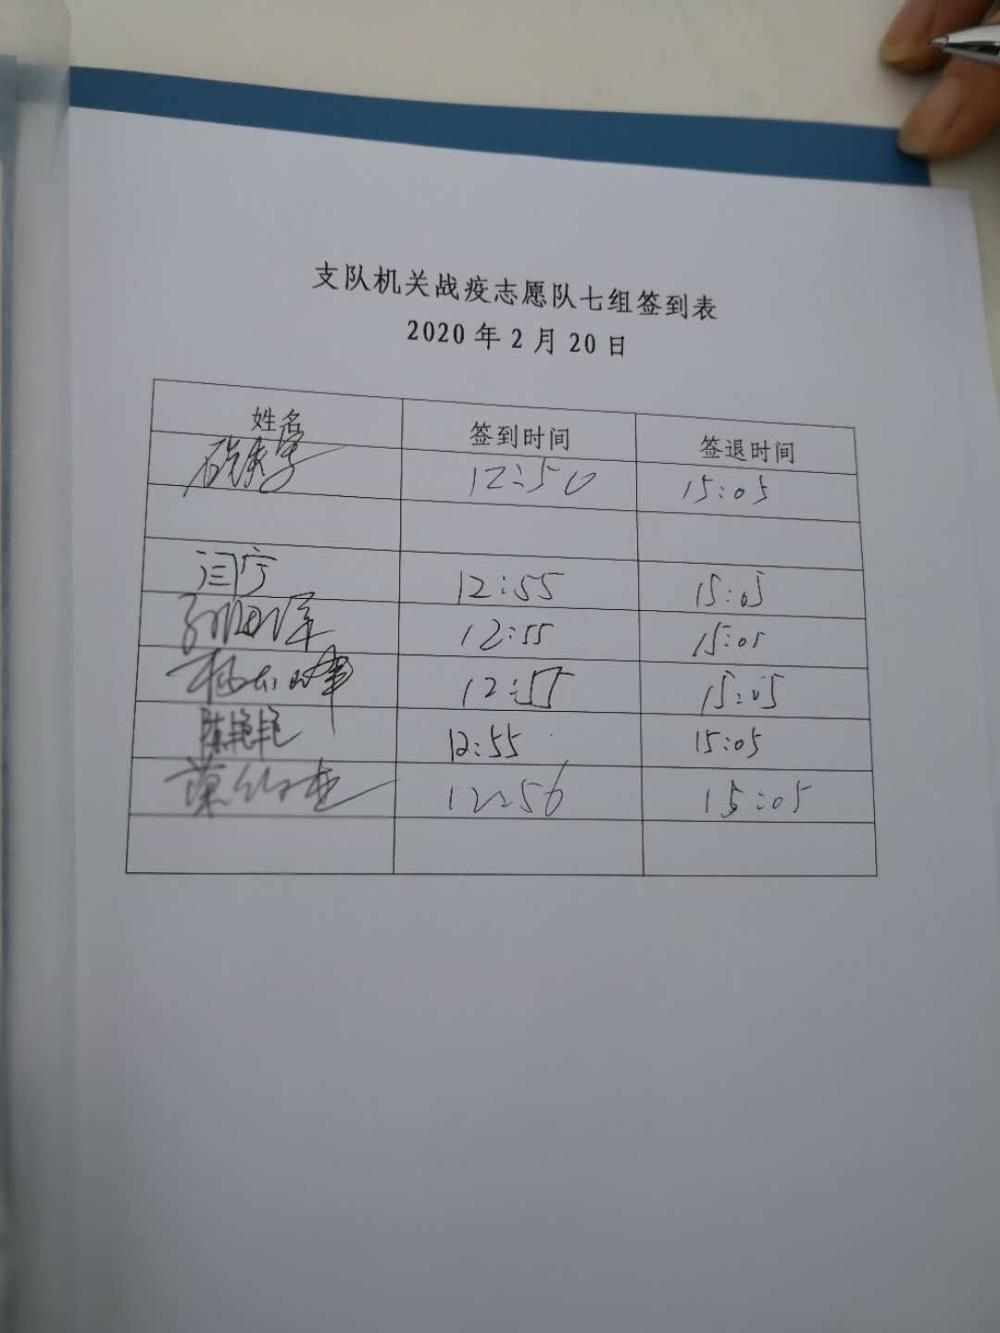 支队机关战疫志愿队七组签到表
2020年2月20日
姓名 签到时间 签退时间
12:50 15:05
闫宁 12:55 15:05
12:55 15:05
12:55 15:05
陈艳艳 12:55 15:05
12:56 15:05